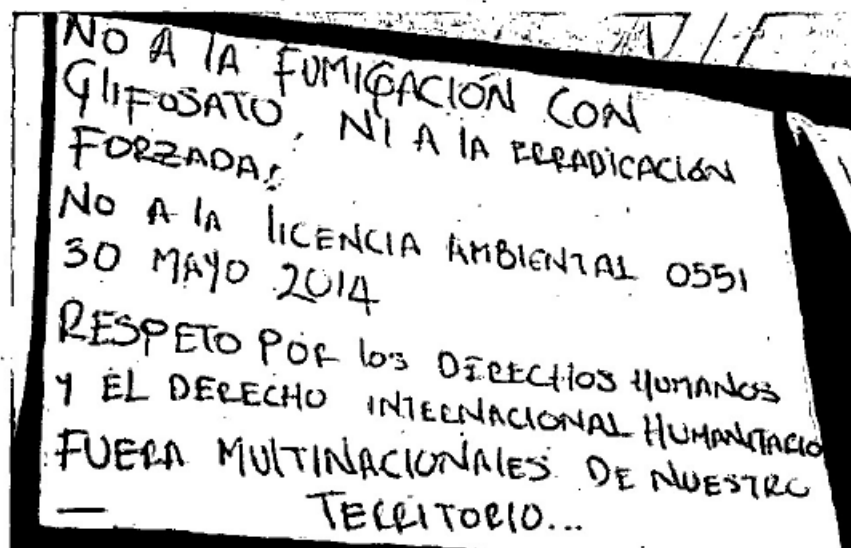 NO A lA FUMIGACIÓN CON
GlIFOSATO, NI A lA ERRADICACIÓN
FORZADA!
NO A lA lICENCIA AMBIENTAL 0551
30 MAYO 2014
RESPETO POR los DERECHOS HUMANOS
Y EL DERECHO INTERNACIONAL HUMANITARIO
FUERA MULTINACIONAlES DE NUESTRO
TERRITORIO...